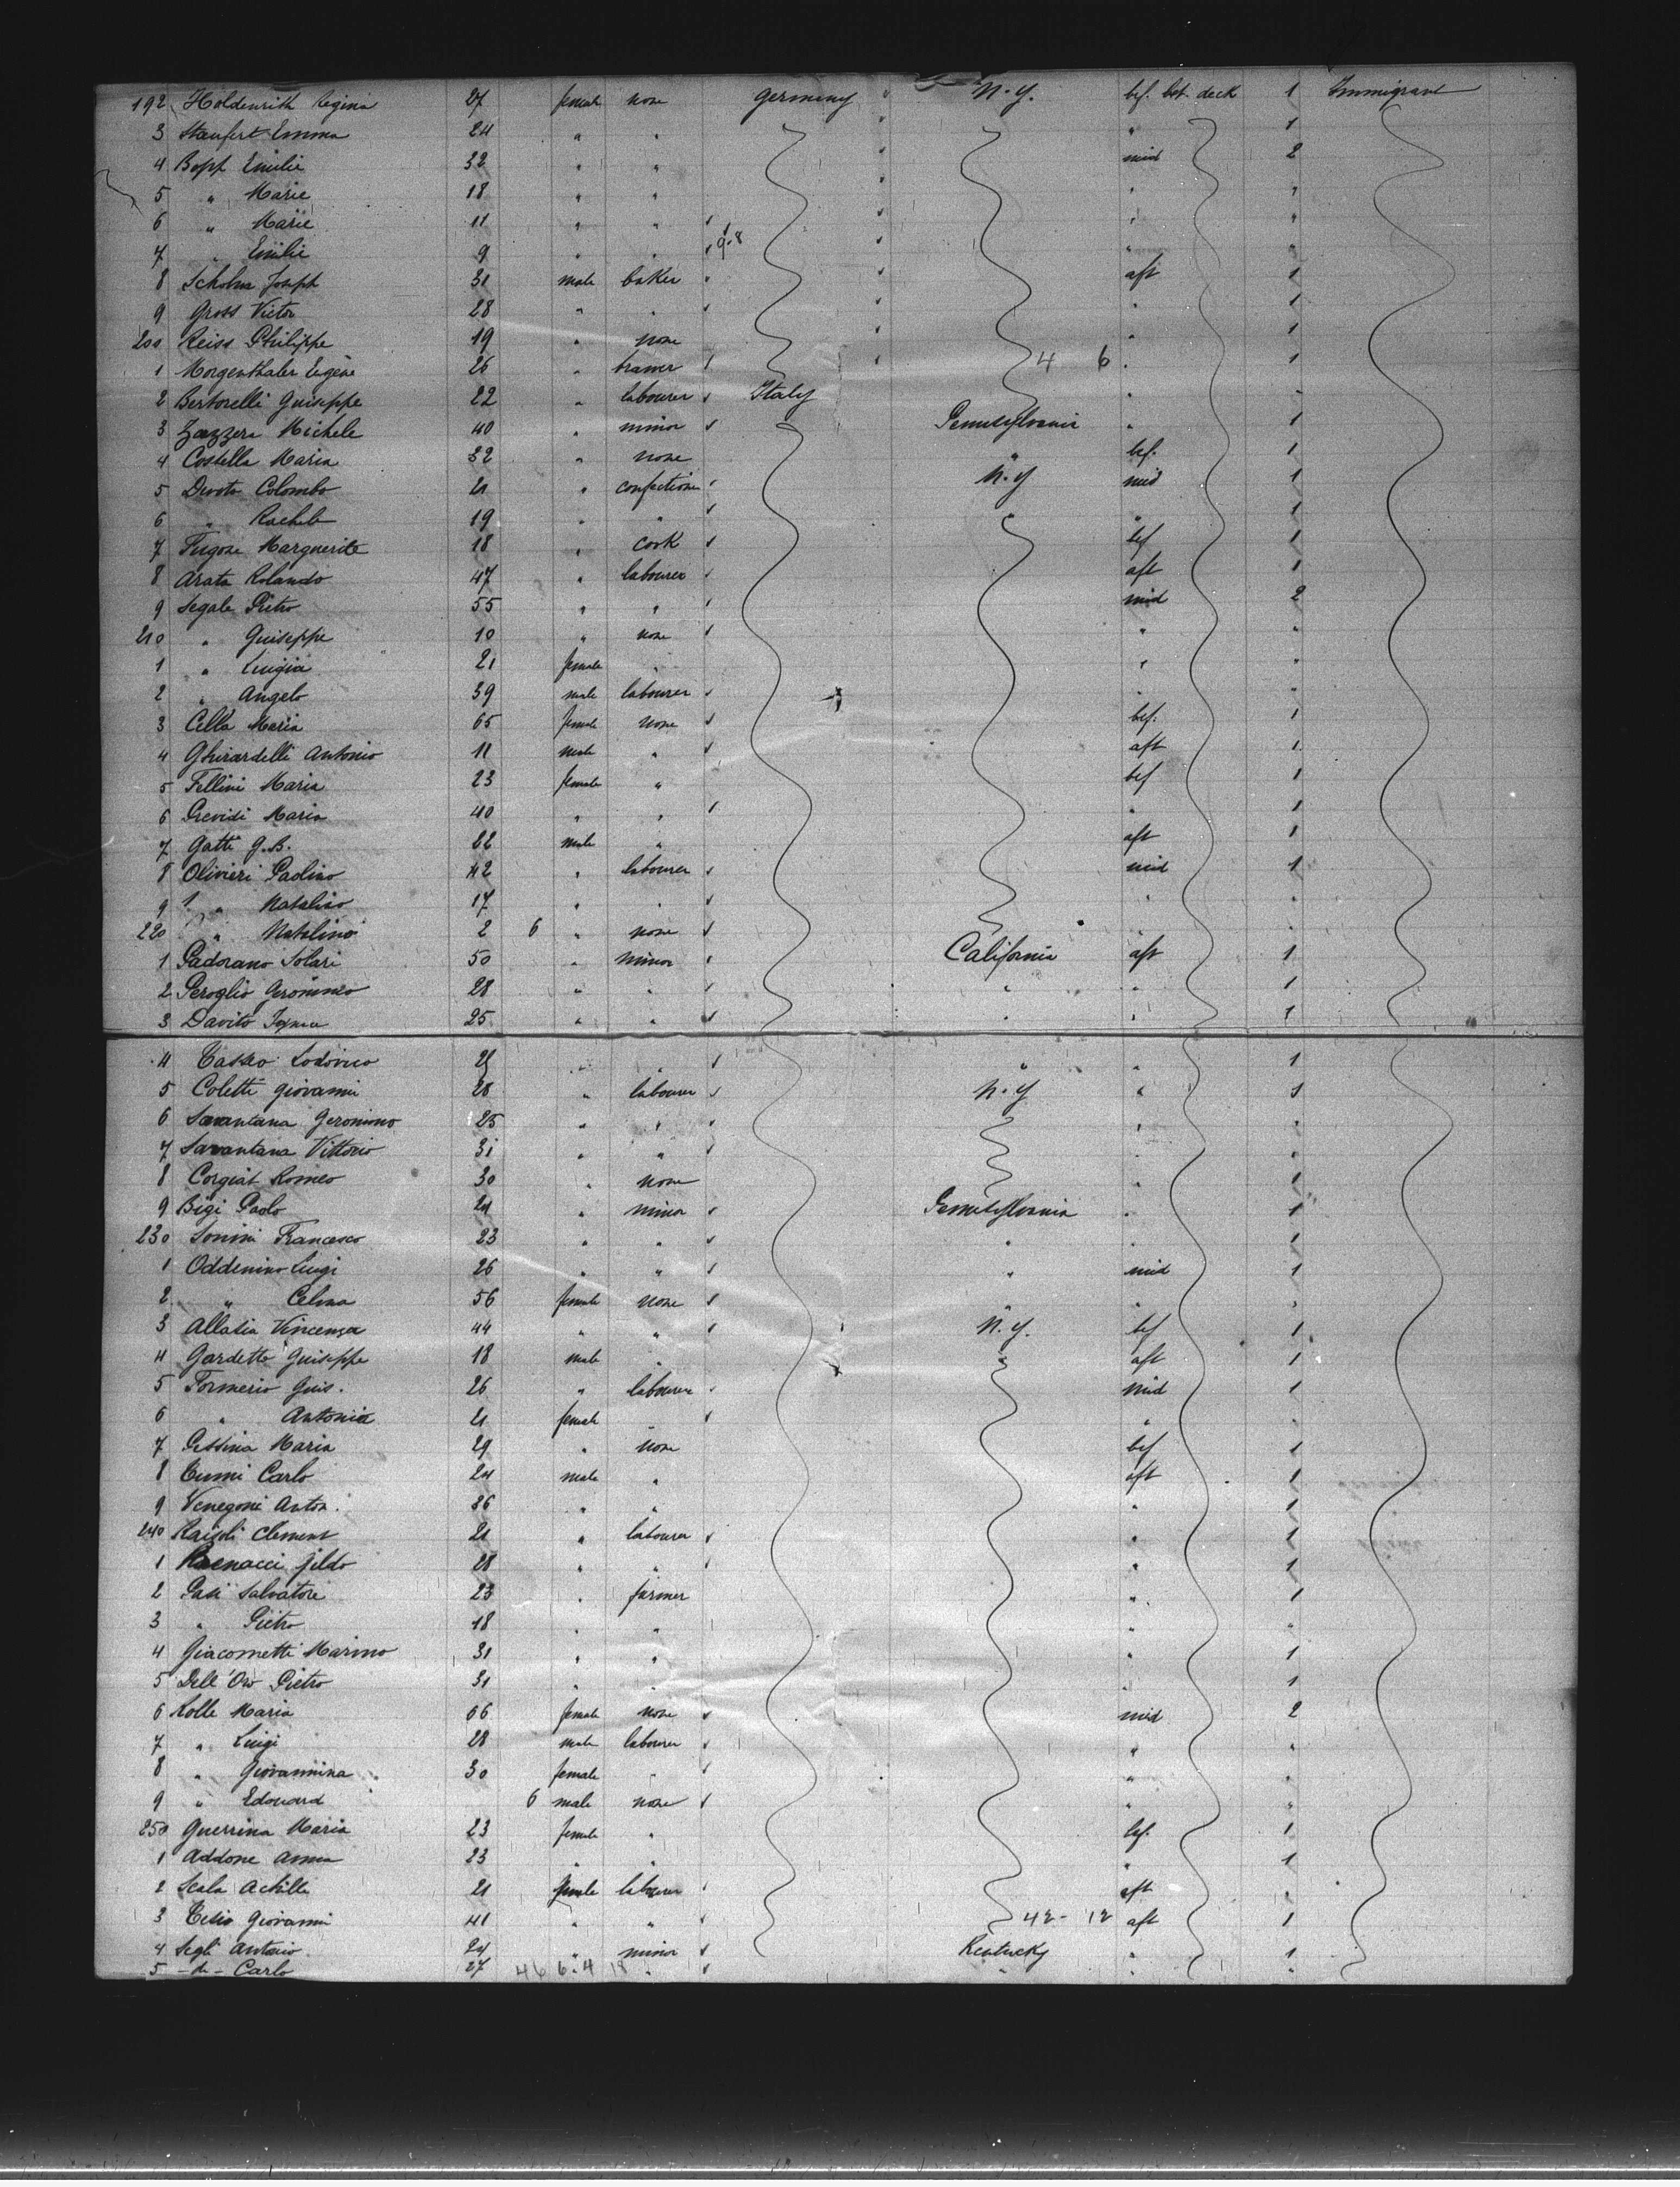 192 Holdenrith Regina 27 female none Germany " N.Y. bef. bet. deck 1 Immigrant
3 Staufert Emma 24 " " " " 1
4 Bopp Emilie 32 " " " mid 2
5 " Marie 18 " " " " "
6 " Marie 11 " " " " "
7 " Emilie 9 " " 9.8 " " "
8 Joseph 31 male baker " aft 1
9 Gross Victor 28 " " " " 1
200 Reiss Philippe 19 " none " " 1
1 Morgenthaler Eugène 26 " " 4 6 " 1
2 Bertorelli Guiseppe 22 " labourer Italy " "
3 Zazzera Michele 40 " minor Pennsylvania " 1
4 Costella Maria 32 " none " bef. 1
5 Devoto Colombo 21 " confectioner N.Y mid 1
6 " Rachele 19 " " " " 1
7 Fugone Marguerite 18 " cook bef 1
8 Arata Rolando 47 " labourer aft 1
9 Segale Pietro 55 " " mid 2
210 " Guiseppe 10 " none " "
1 " Luigia 21 female " " "
2 " Angelo 39 male labourer " "
3 Cella Maria 65 female none bef. 1
4 Ghirardelli Antonio 11 male " aft 1
5 Fellini Maria 23 female " bef 1
6 Maria 40 " " " 1
7 Gatti G.B. 22 male " aft 1
8 Olivieri Paolino 42 " labourer mid 1
9 " Natalino 17 " " " "
220 " Natalino 2 6 " none " "
1 Padorano Solari 50 " minor California aft 1
2 Peroglio Geronimo 28 " " " " 1
3 Davito 25 " " " " 1
4 Lodovico " " " " 1
5 Coletti Giovanni 28 " labourer N.Y " 1
6 Savantana Geronimo 25 " " " "
7 Savantana Vittorio 31 " " " "
8 Corgiat Romeo 30 " none " 1
9 Bigi Paolo 24 " minor Pennsylvania " 1
230 Sonini Francesco 23 " " " " 1
1 Oddenino Luigi 26 " " " mid 1
2 " Celina 56 female none " " "
3 Allasia Vincenza 44 " " N.Y. bef 1
4 Gardetto Guiseppe 18 male " " aft 1
5 Formerio Guis. 26 " labourer mid 1
6 " Antonia 21 female " "
7 Maria 29 " none bef 1
8 Carlo 24 male " aft 1
9 Venegoni Anton. 36 " " " 1
240 Clement 21 " labourer " 1
1 Gildo 28 " " " 1
2 Pasi Salvatore 23 " farmer " 1
3 " Pietro 18 " " " "
4 Giacometti Marino 31 " " " 1
5 Dell'Oro Pietro 31 " " " 1
6 Rolle Maria 66 female none mid 2
7 " Luigi 28 male labourer " "
8 " Giovannina 30 female " " "
9 " Edouard 6 male none " "
250 Guerrina Maria 23 female " bef. 1
1 Addone Anna 23 " " " 1
2 Scala Achille 21 female labourer aft "
3 Giovanni 41 " " 42- 12 aft 1
4 Segli Antonio 24 " minor Kentucky " 1
5 -do- Carlo 27 46 6.4 18 " " " "